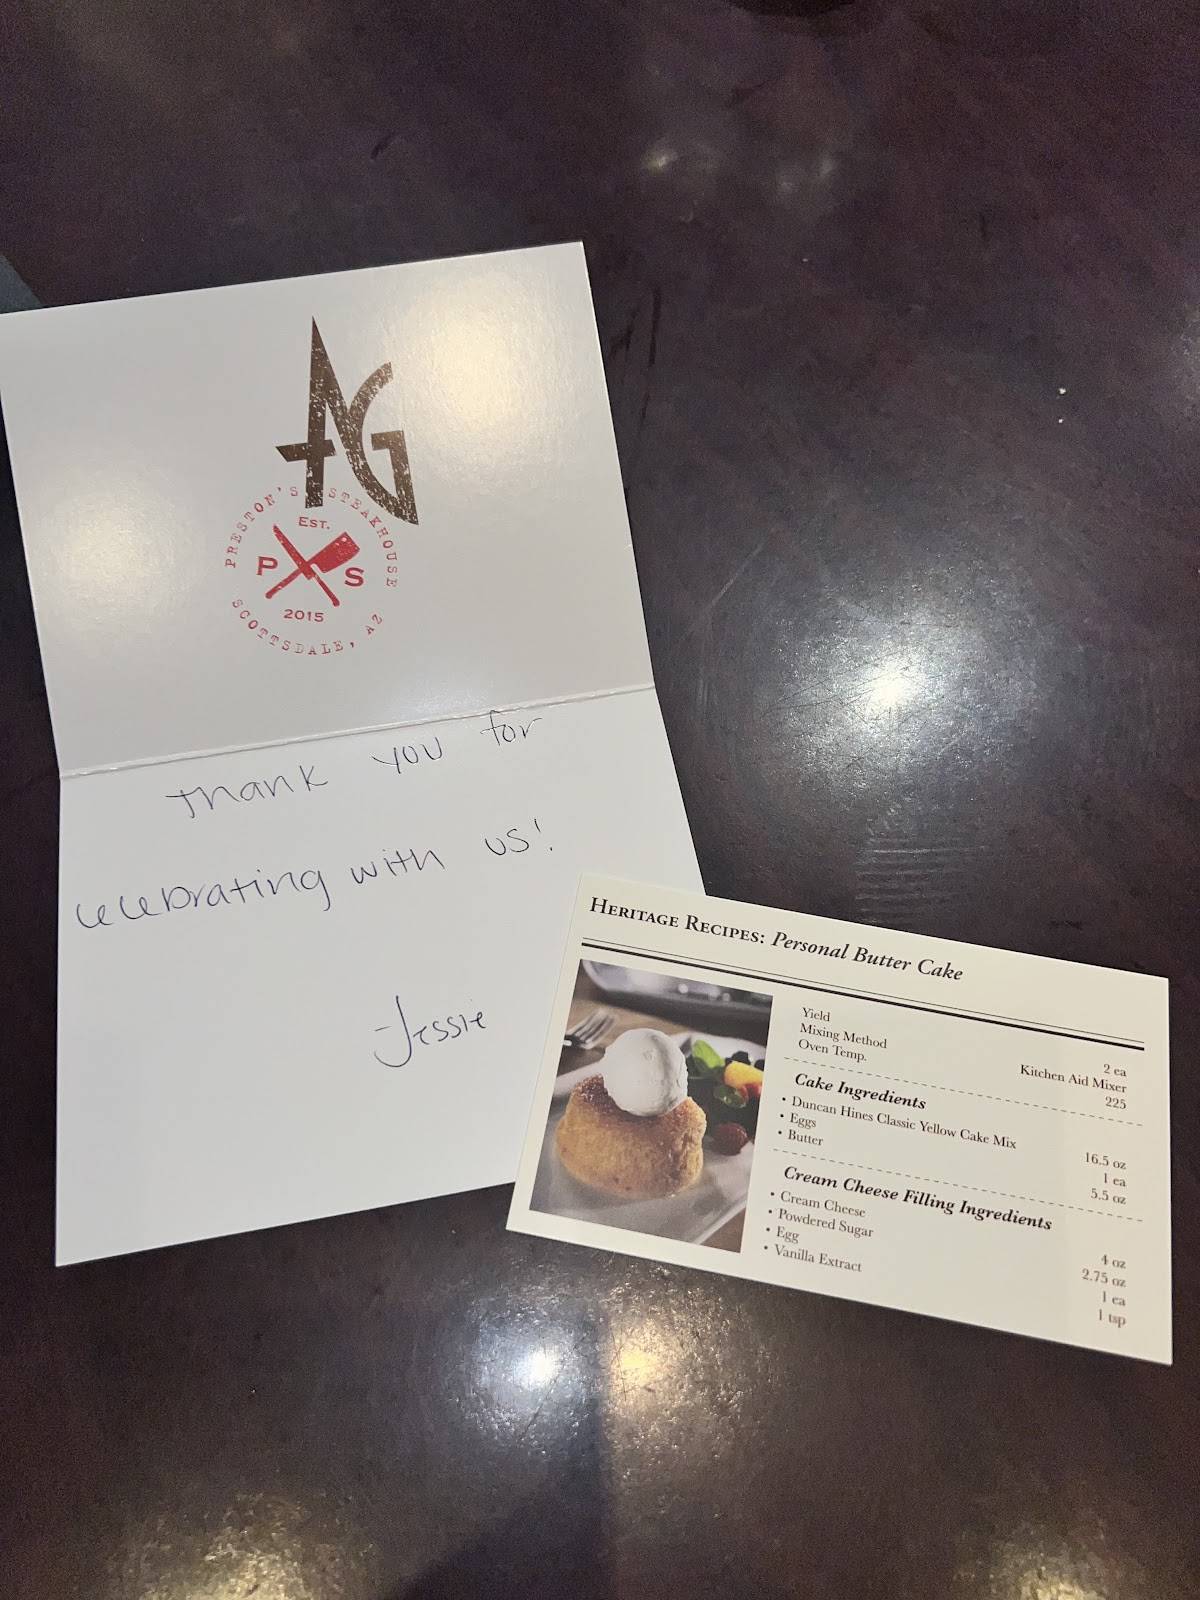 AG
PRESTON'S STEAKHOUSE
EST.
P S
2015
SCOTTSDALE, AZ
Thank you for
celebrating with us!
Jessie
HERITAGE RECIPES: Personal Butter Cake
Yield 2 ea
Mixing Method Kitchen Aid Mixer
Oven Temp. 225
Cake Ingredients
• Duncan Hines Classic Yellow Cake Mix 16.5 oz
• Eggs 1 ea
• Butter 5.5 oz
Cream Cheese Filling Ingredients
• Cream Cheese 4 oz
• Powdered Sugar 2.75 oz
• Egg 1 ea
• Vanilla Extract 1 tsp